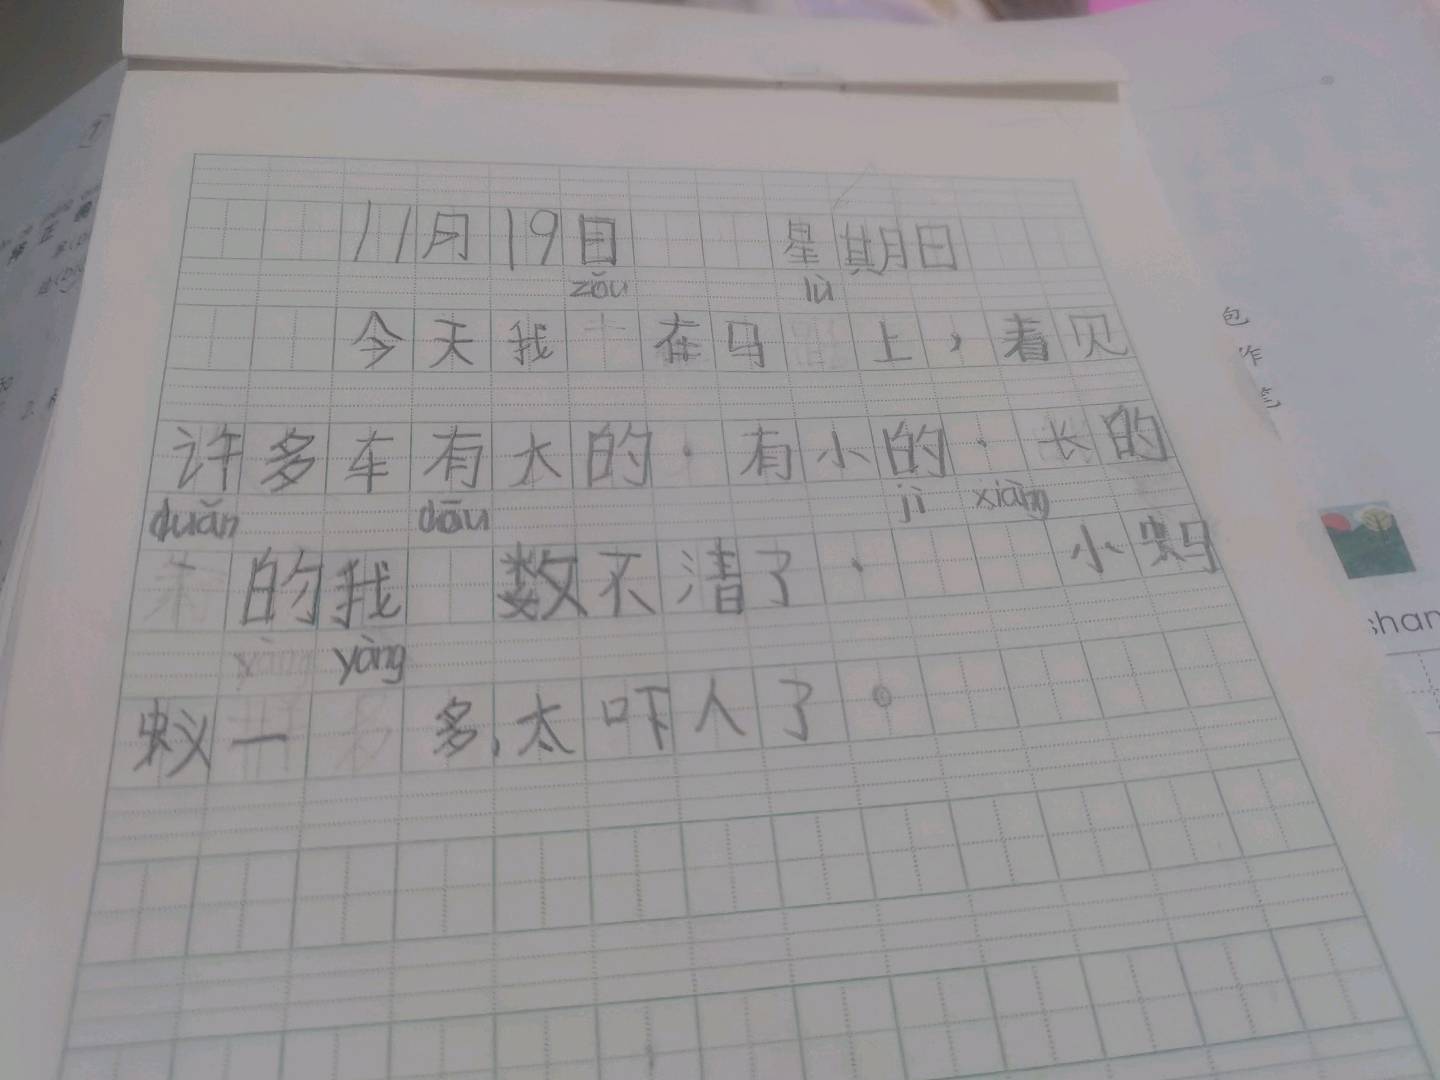 11月19日 星期日
zǒu lù
今天我 在马 上，着见
许多车有大的·有小的·长的
duǎn dōu jì xiàng
的我 数不清了· 小蚂
yàng
蚁一 多,太吓人了。
包
作
shan